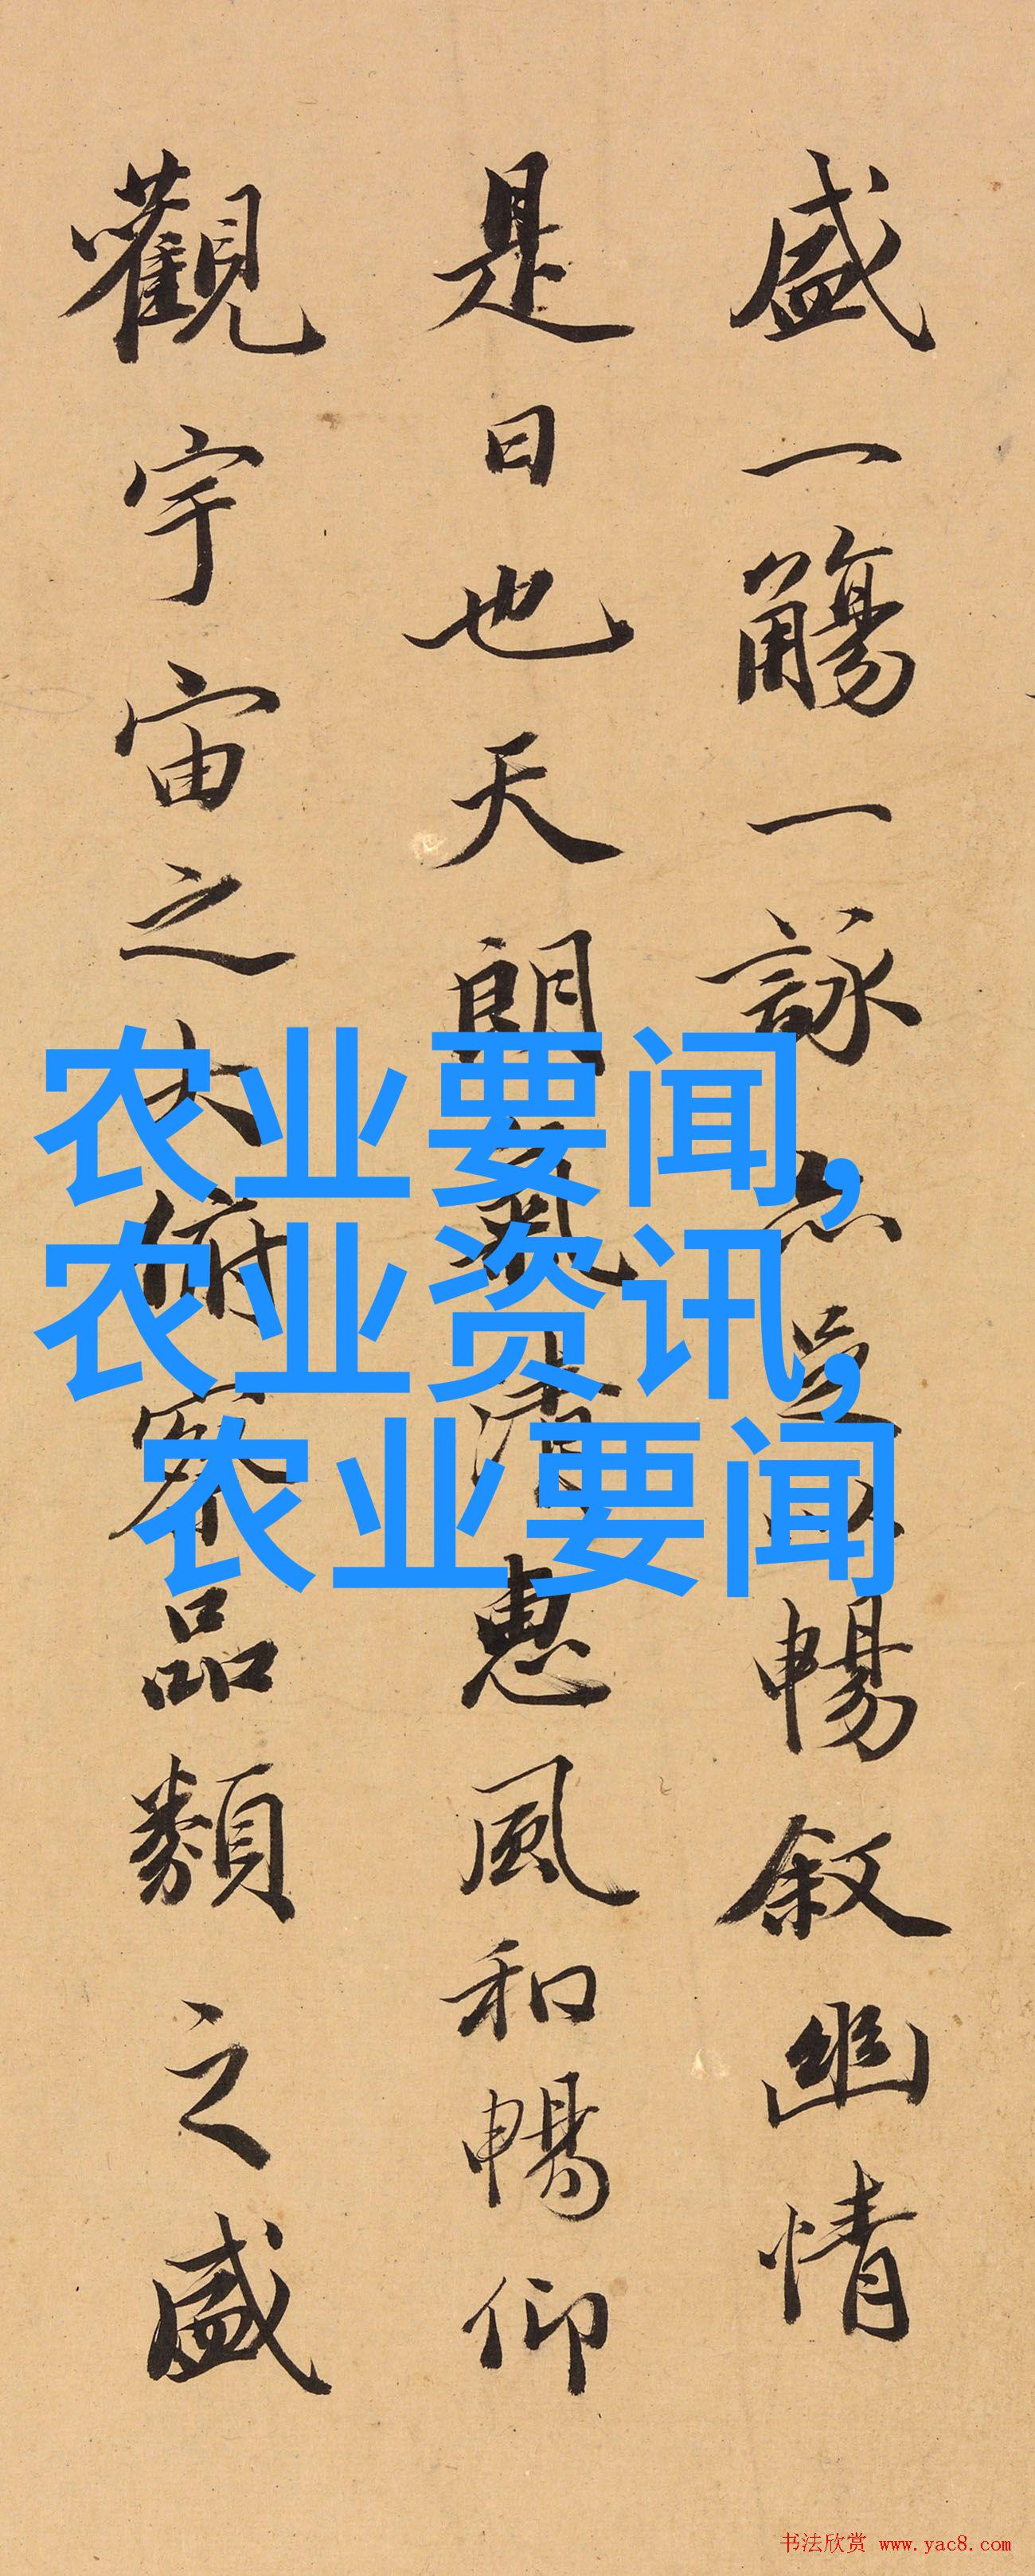 盛一觴一詠亦足以暢叙幽情
是日也天朗氣清惠風和暢仰
觀宇宙之大俯察品類之盛
农业要闻,
农业资讯,
农业要闻
书法欣赏 www.yac8.com